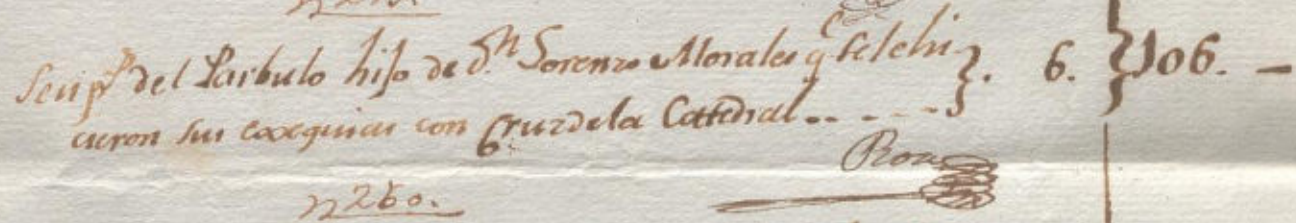 Seis p.r del Parbulo hijo de D.n Lorenzo Morales q.e se le hi
cieron sus exequias con Cruz de la Cattedral..---}. 6. }106. —
n 260.